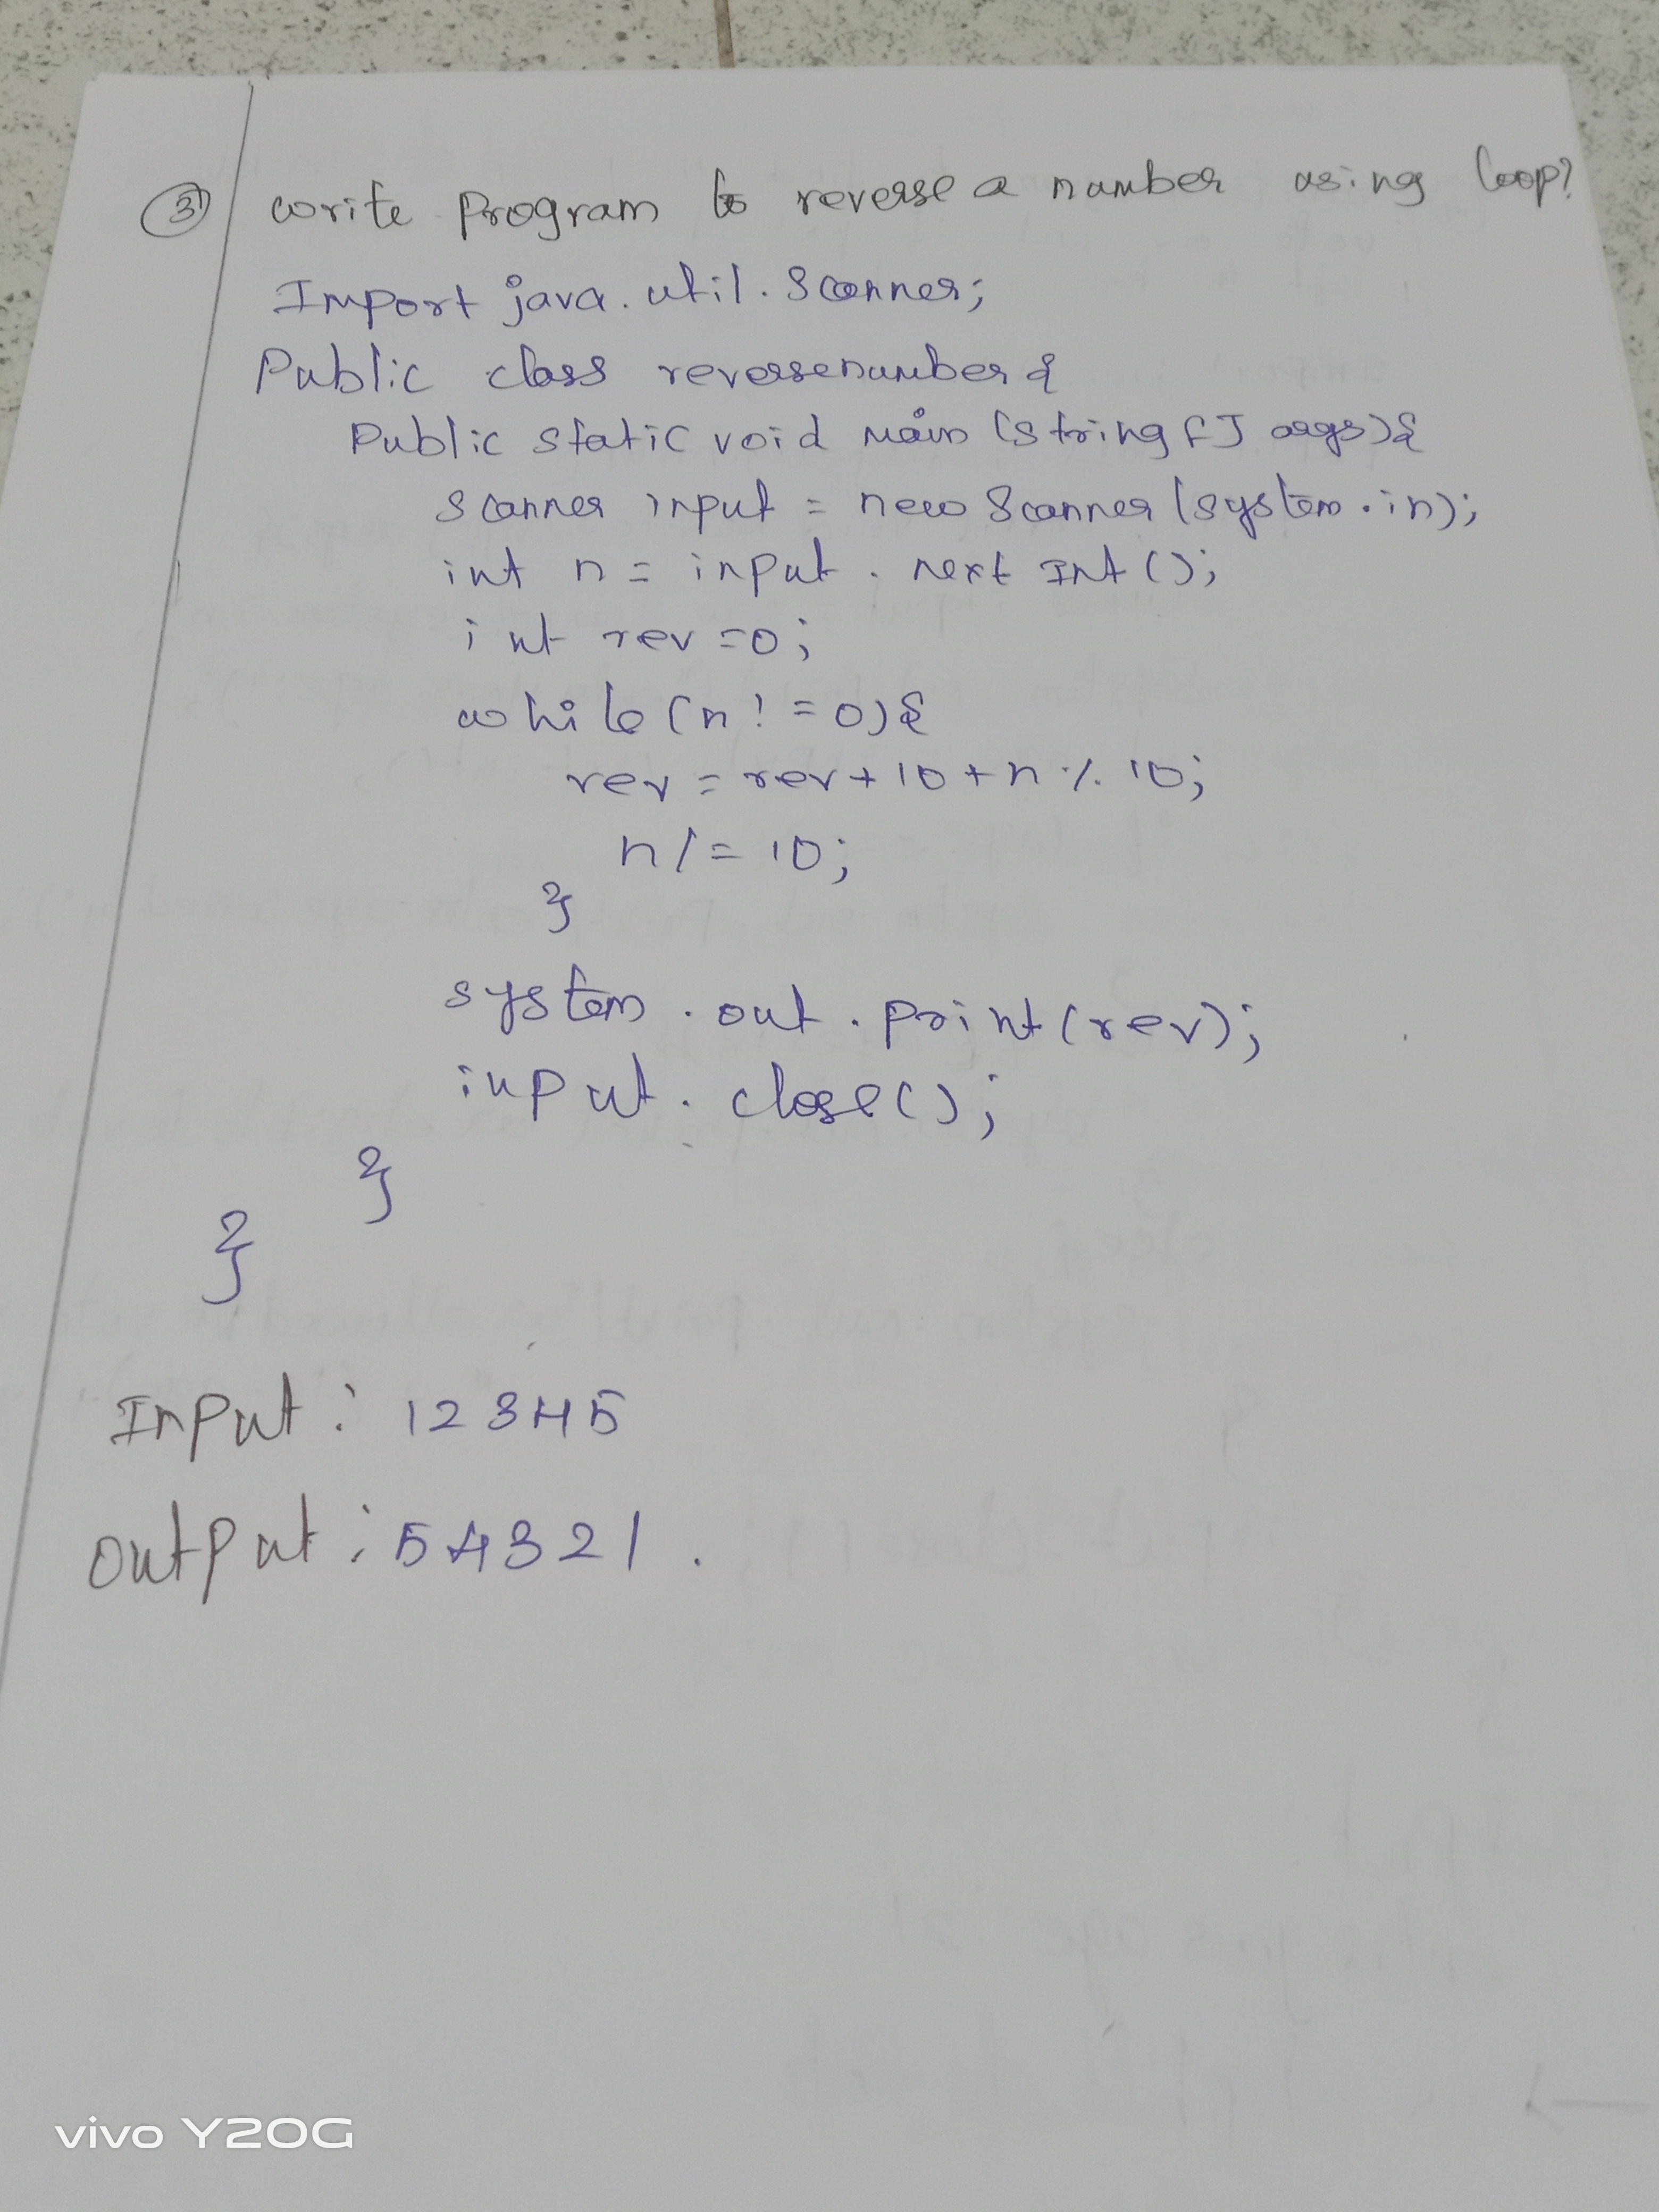 3) write program to reverse a number using loop?
Import java.util.Scanner;
Public class reversenumber{
Public static void main (string [] args){
Scanner input = new Scanner (system.in);
int n = input . next Int ();
int rev =0;
while (n ! = 0){
rev = rev + 10 + n % 10;
n / = 10;
}
system . out . print (rev);
input . close ();
}
}
Input : 12345
Output : 54321 .
vivo Y20G